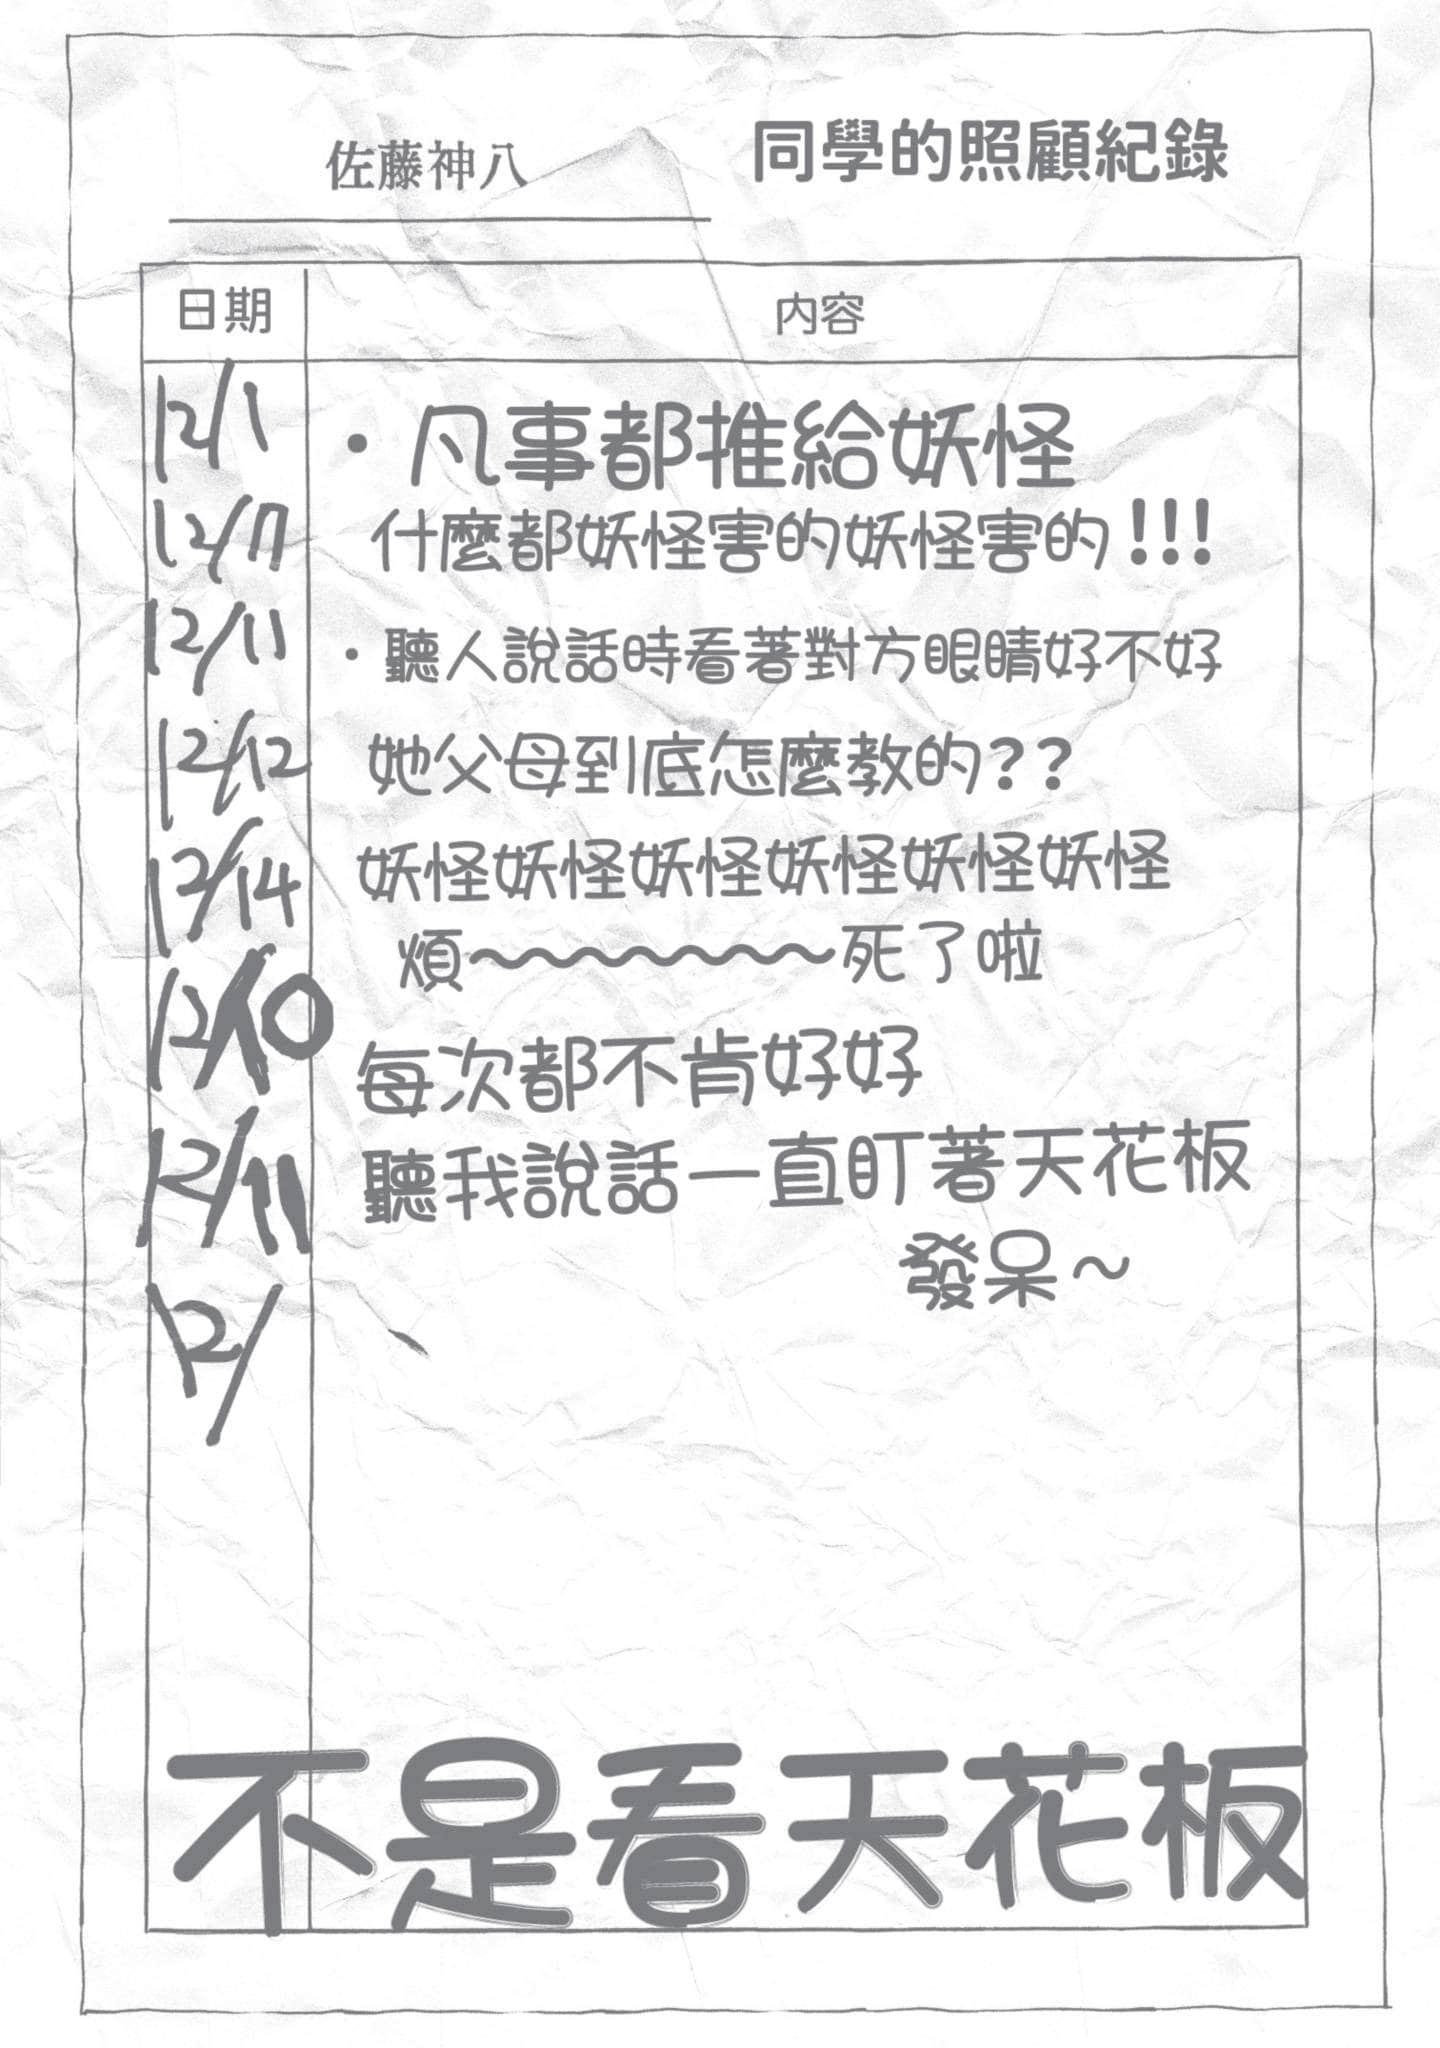 佐藤神八 同學的照顧紀錄
日期 內容
12/1 ・凡事都推給妖怪
12/7 什麼都妖怪害的妖怪害的!!!
12/11 ・聽人說話時看著對方眼睛好不好
12/12 她父母到底怎麼教的??
12/14 妖怪妖怪妖怪妖怪妖怪妖怪
煩～～～～～～～～死了啦
12/10 每次都不肯好好
12/11 聽我說話一直盯著天花板
發呆～
12/
不是看天花板